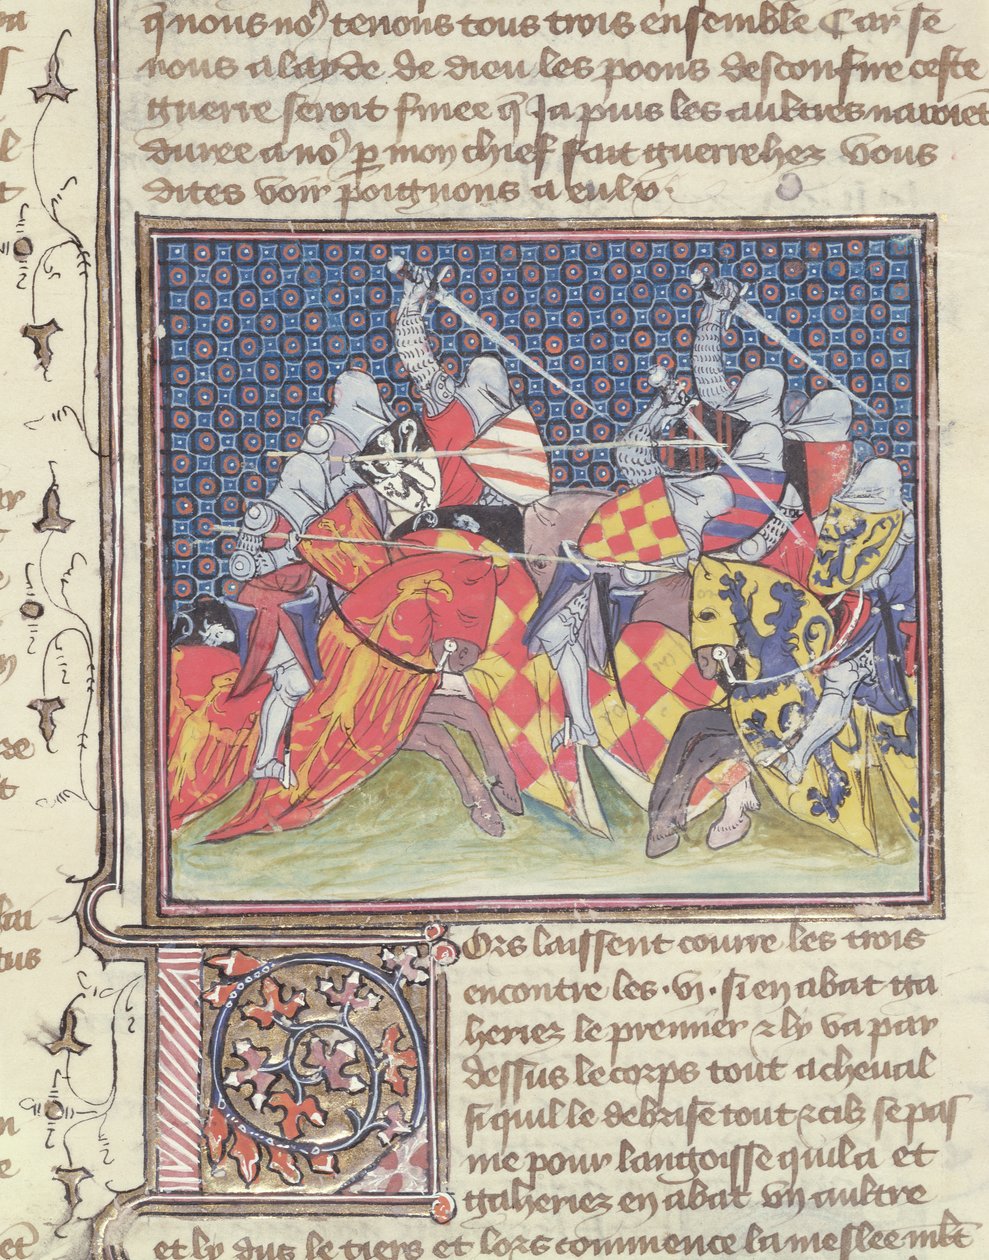 q̃ nous no⁹ tenons tous trois ensemble Car se
nous a layde de dieu les poons desconfire ceste
guerre seroit finee q̃ Ja puis les aultres nauroiēt
duree a no⁹ p̱ mon chief fait guerrehez vous
dites voir poignons a eulx.
Lors laissent courre les trois
encontre les .vj. si en abat ga
heriez le premier ⁊ ly va par
dessus le corps tout a cheual
si quil le debrise tout ⁊ cilz se pas
me pour langoisse quil a et
gaheriez en abat vn aultre
et ly dus le tiers et lors commence la meslee